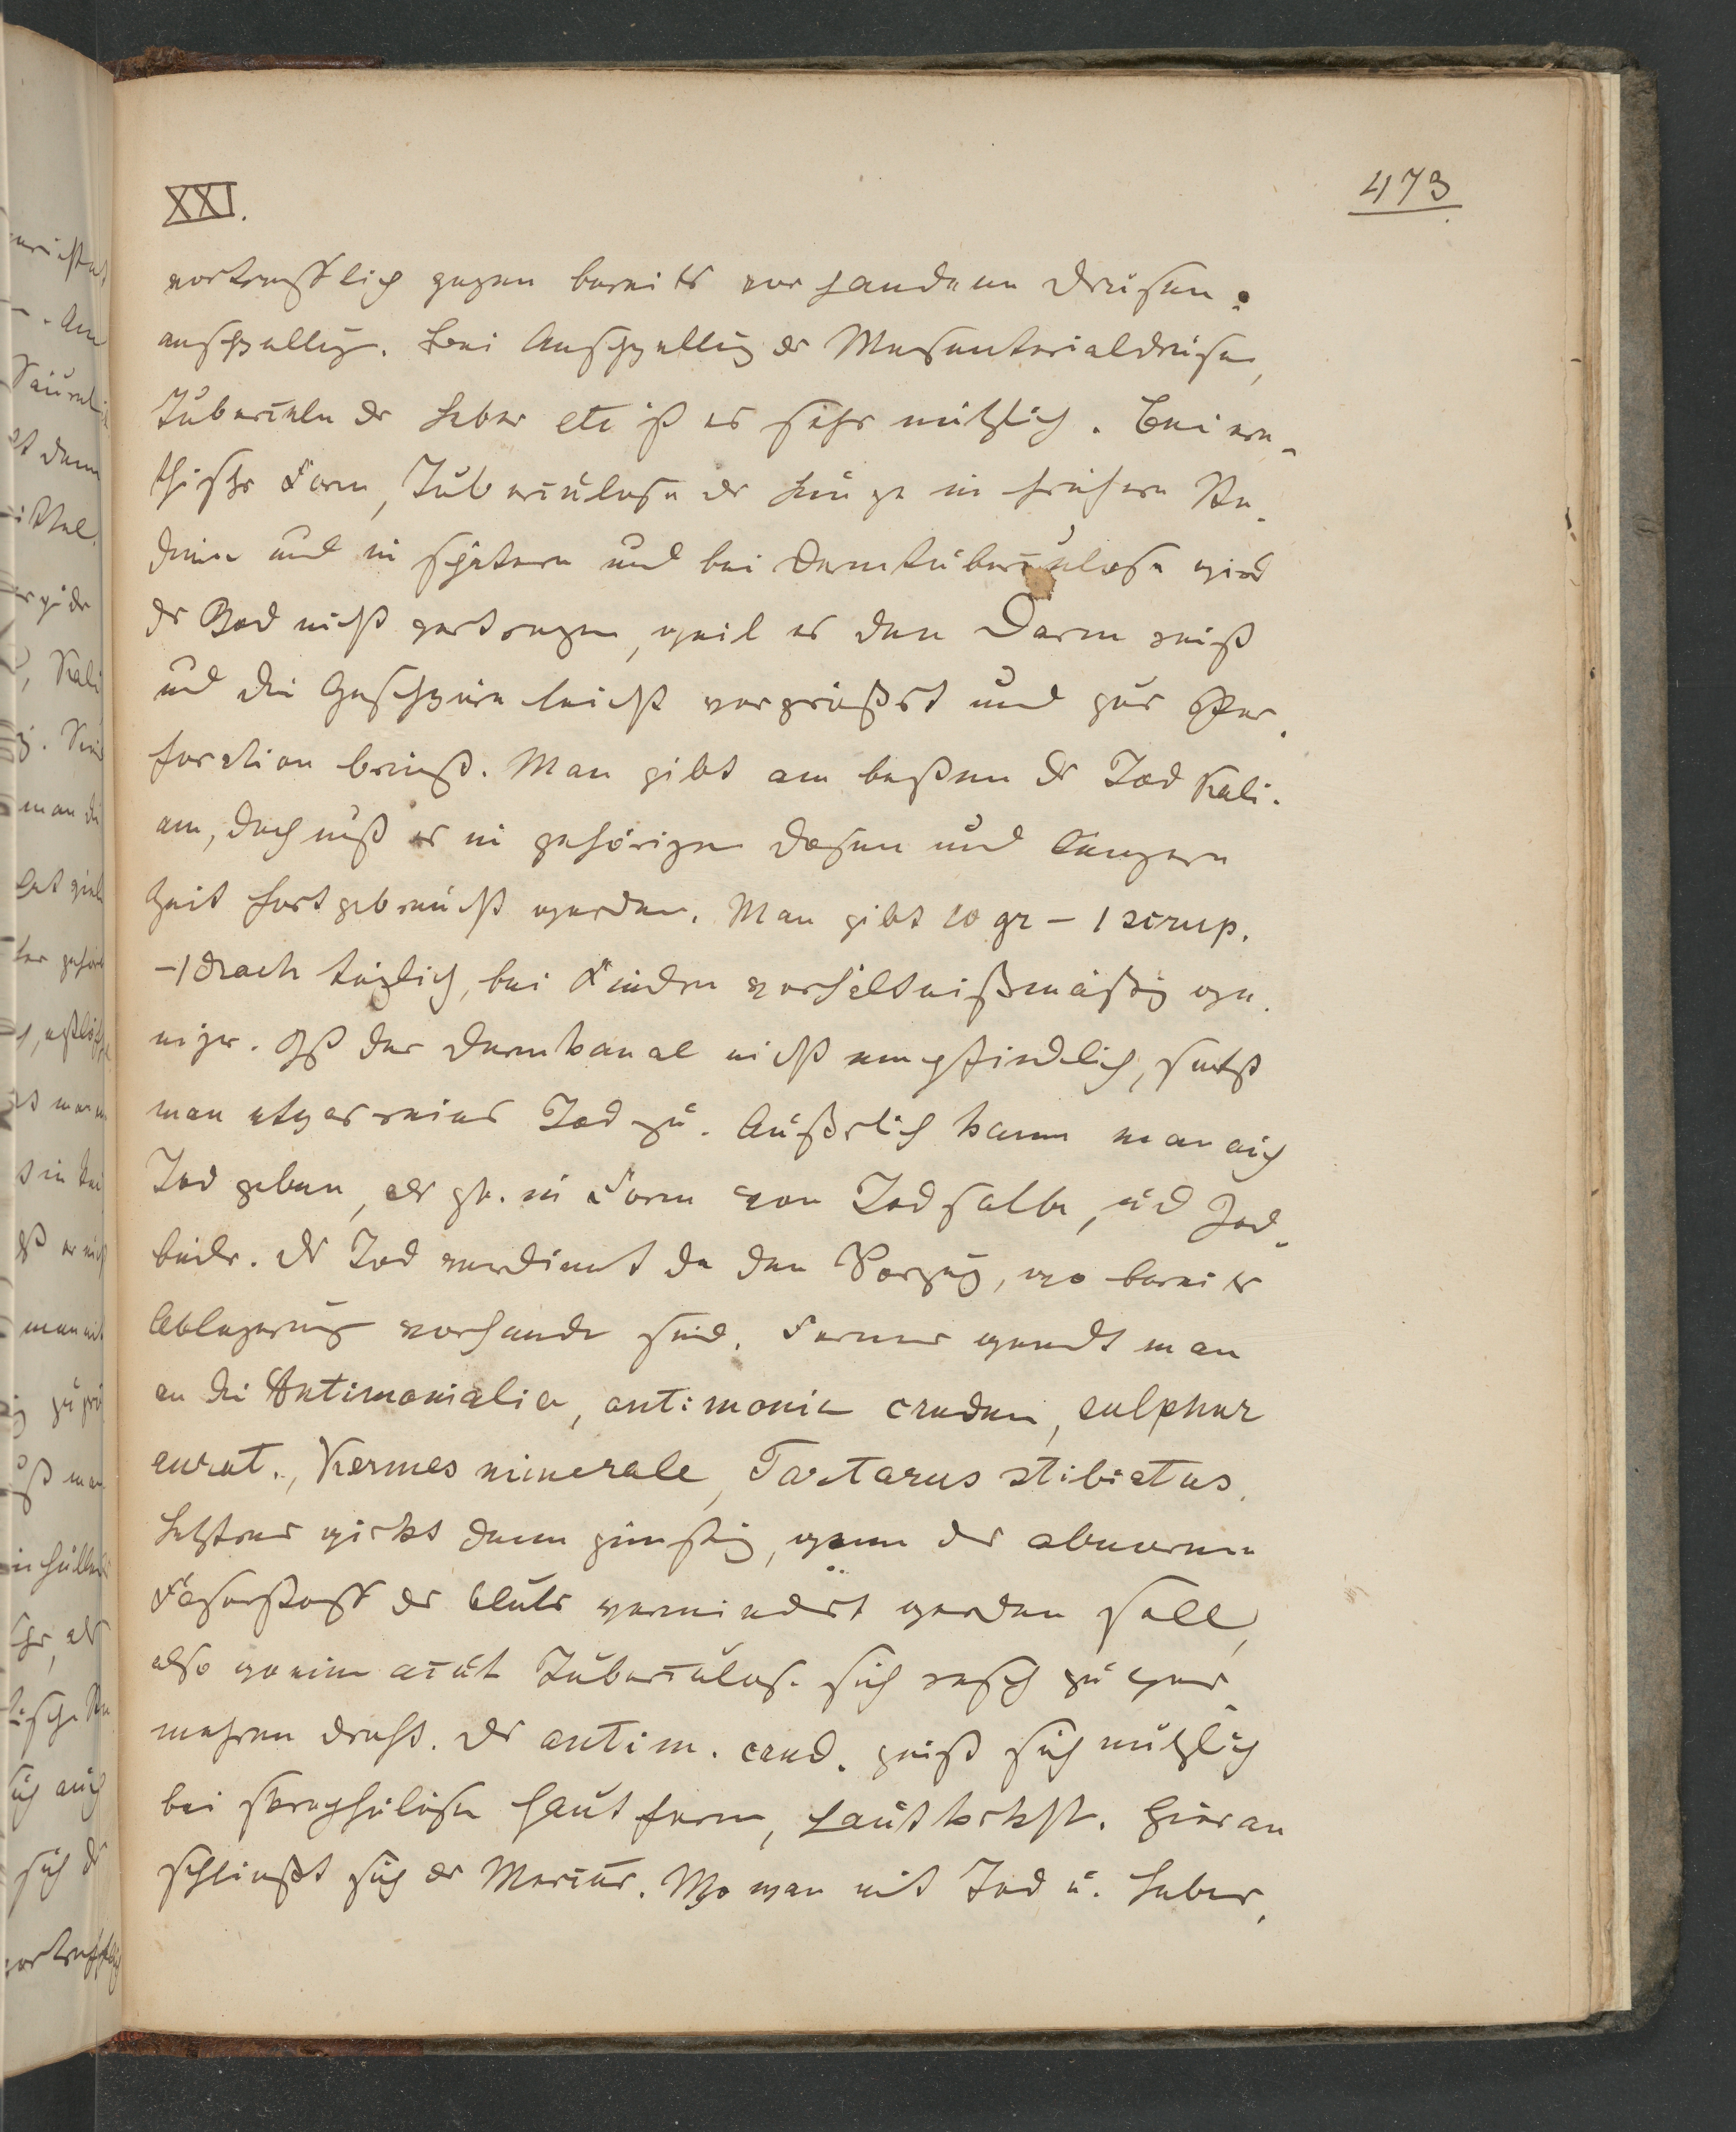 XXI.
473
vortrefflich gegen bereits vorhandenen Drüsen-
anschwellg. Bei Anschwellg der Mesenterialdrüsen,
Tuberkeln der Leber etc ist es sehr nützlich. Bei ere-
thischer Form, Tuberculose der Lunge in frühern Sta-
dien und in spätern und bei Darmtuberculose wird
der Jod nicht vertragen, weil er den Darm reizt
und die Geschwüre leicht vergrößert und zur Per-
foration bringt. Man gibt am besten der Jod Kali-
um, doch muß er in gehörigen Dosen und längere
Zeit fortgebraucht werden. Man gibt 10 gr – 1 scrup.
– 1 drach täglich, bei Kindern verhältnißmäßig we-
niger. Ist der Darmkanal nicht empfindlich, setzt
man etwas reines Jod zu. Äußerlich kann man auch
Jod geben, in Form von Jodsalbe, und Jod-
bäder. Der Jod verdient da den Vorzug, wo bereits
Ablagerung vorhanden sind. Ferner wendt man
an die Antimonialia, antimonium crudum, sulphur
aurat., Kermes minerale, Tartarus stibiatus.
Letzteres wirkt dann günstig, wenn der abnorme
Faserstoff des Bluts vermindert werden soll,
also wo eine acut Tuberculos. sich rasch zu ver-
mehren droht. Der antim. crud. zeigt sich nützlich
bei skrophulösen Hautform, Hautkrkht. Hieran
schließt sich der Mercur. Wo man mit Jod u. Leber-